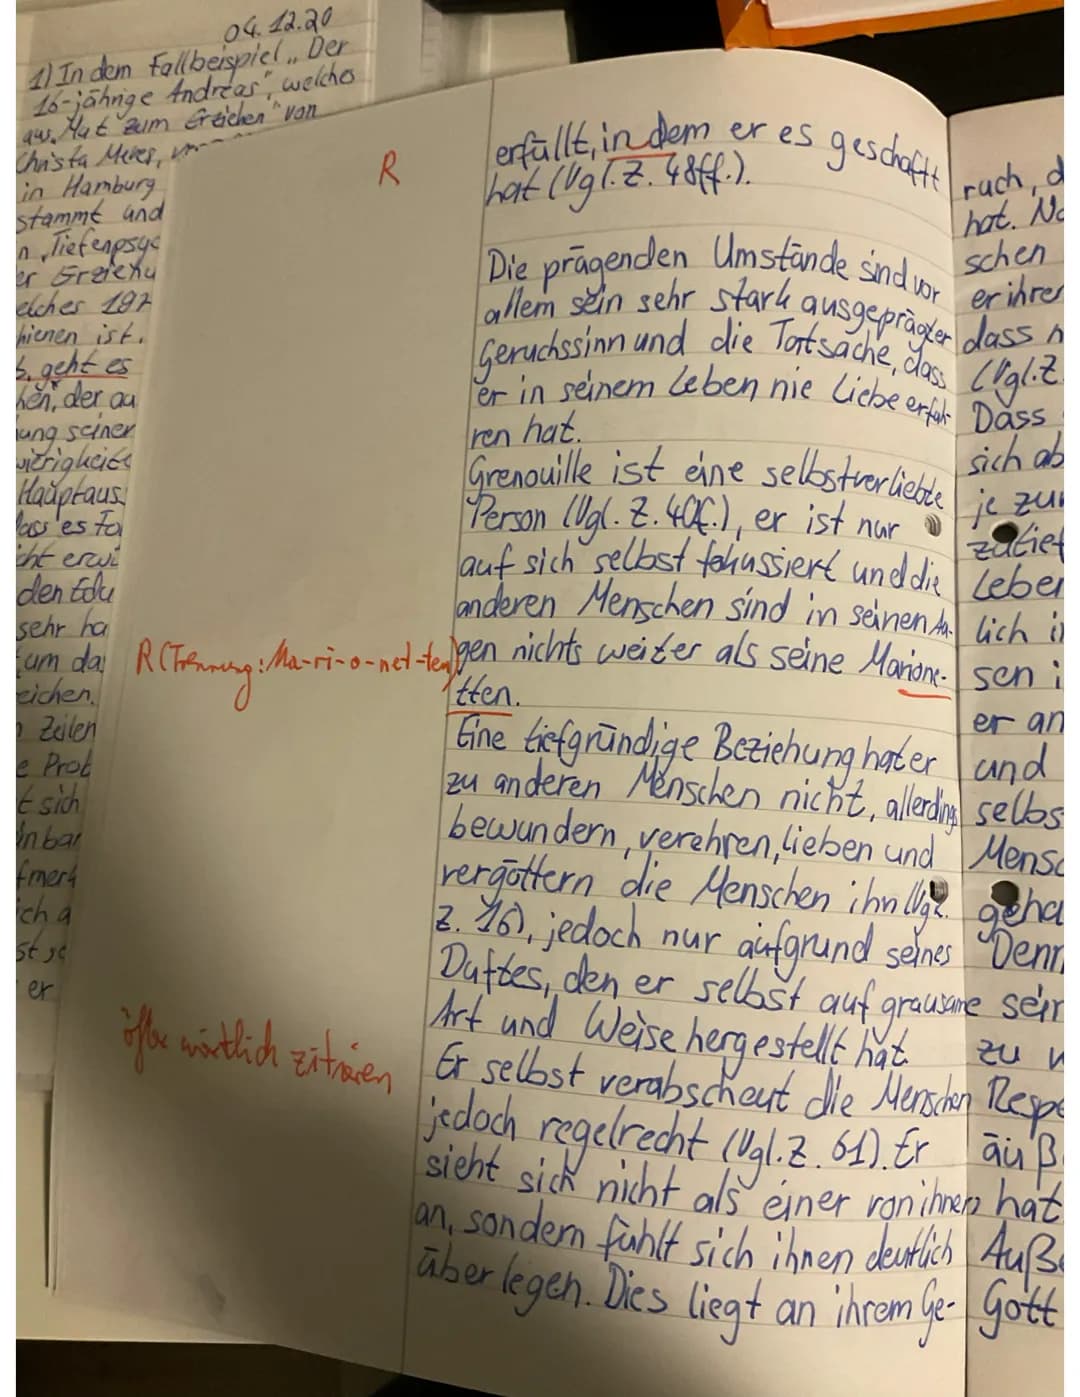 04.12.20
1) In dem Fallbeispiel „Der
16-jährige Andreas", welches
aus „Mut zum Erziehen" von
Christa Meves,
in Hamburg
stammt und
n Tiefenpsyc
er Erziehu
elches 197
hienen ist.
geht es
hen, der au
ung seiner
wierigkeite
Hauptaus
dass es Fa
cht erwü
den Edu
sehr ha
um da
eichen.
Zeilen
e Prob
t sich
inbar
fmerk
ich a
er
R
erfüllt, in dem er es geschafft
hat (Vgl. Z. 48ff.).
Die prägenden Umstände sind vor
allem sein sehr stark ausgeprägter
Geruchssinn und die Tatsache, dass
er in seinem Leben nie Liebe erfah-
ren hat.
Grenouille ist eine selbstverliebte
Person (Vgl. Z. 40f.), er ist nur
auf sich selbst fokussiert und die
anderen Menschen sind in seinen Au-
R (Trennung: Ma-ri-o-net-ten)
gen nichts weiter als seine Marione-
tten.
Eine tiefgründige Beziehung hat er
zu anderen Menschen nicht, allerdings
bewundern, verehren, lieben und
vergöttern die Menschen ihn (Vgl.
Z. 16), jedoch nur aufgrund seines
Duftes, den er selbst auf grausame
Art und Weise hergestellt hat.
öfter wörtlich zitieren
Er selbst verabscheut die Menschen
jedoch regelrecht (Vgl. Z. 61). Er
sieht sich nicht als einer von ihnen
an, sondern fühlt sich ihnen deutlich
überlegen. Dies liegt an ihrem Ge-
ruch, d
hat. No
schen
er ihrer
dass n
(Vgl. Z
Dass
sich ab
je zur
zutief
Leber
lich i
sen i
er an
und
selbs
Mensc
geha
Denn
sein
zu w
Respe
äuß
hat
Auße
Gott